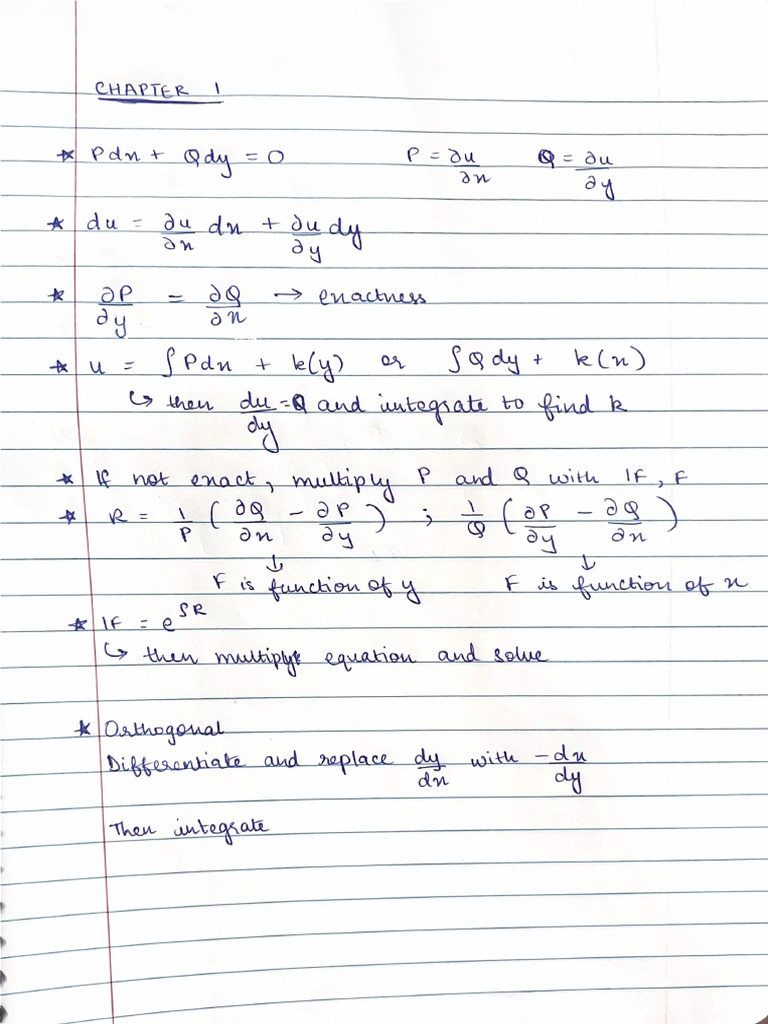 CHAPTER 1
* Pdx + Qdy = 0 P = ∂u/∂x Q = ∂u/∂y
* du = ∂u/∂x dx + ∂u/∂y dy
* ∂P/∂y = ∂Q/∂x → exactness
* u = ∫Pdx + k(y) or ∫Qdy + k(x)
↳ then du/dy = Q and integrate to find k
* If not exact, multiply P and Q with IF, F
* R = 1/P (∂Q/∂x − ∂P/∂y) ; 1/Q (∂P/∂y − ∂Q/∂x)
↓ ↓
F is function of y F is function of x
* IF = e^∫R
↳ then multiply equation and solve
* Orthogonal
Differentiate and replace dy/dx with −dx/dy
Then integrate